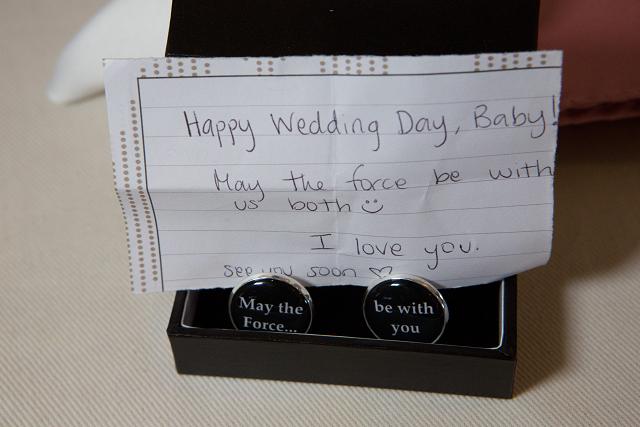 Happy Wedding Day, Baby!
May the force be with
us both ☺
I love you.
see you soon ♡
May the
Force...
be with
you